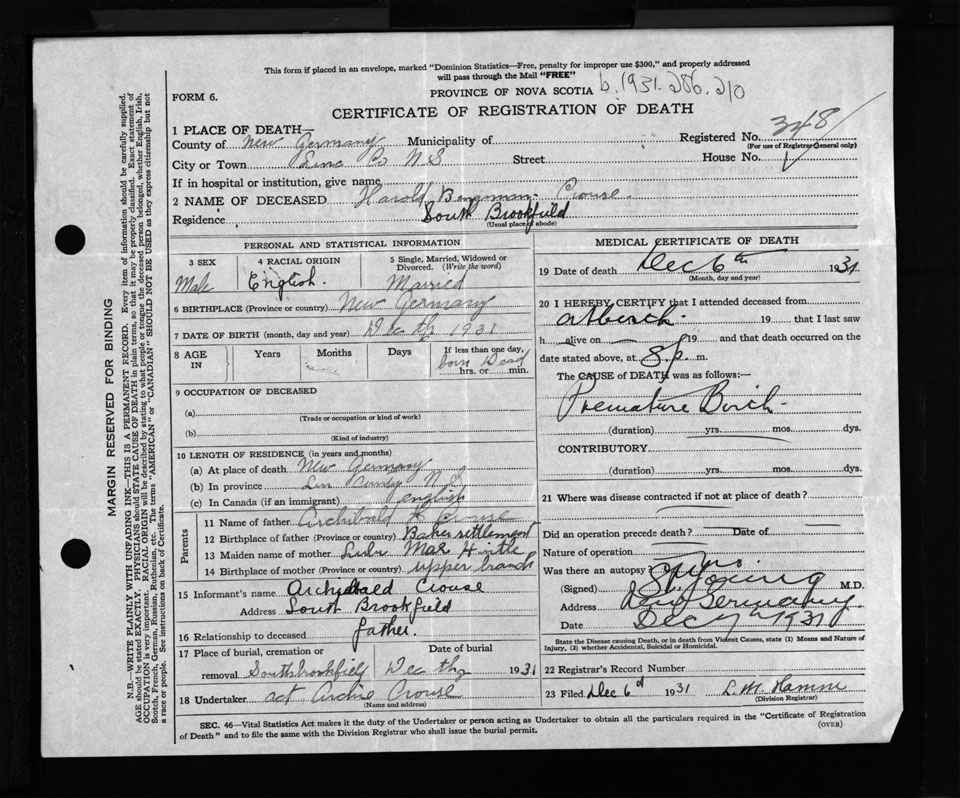 This form if placed in an envelope, marked "Dominion Statistics—Free, penalty for improper use $300," and properly addressed
will pass through the Mail "FREE"
PROVINCE OF NOVA SCOTIA b. 1931. 286. 210
FORM 6.
CERTIFICATE OF REGISTRATION OF DEATH
1 PLACE OF DEATH—
County of New Germany Municipality of Registered No. 348
(For use of Registrar General only)
City or Town Lune Co N S Street House No. 1
If in hospital or institution, give name
2 NAME OF DECEASED Harold Crouse
Residence South Brookfield
(Usual place of abode)
PERSONAL AND STATISTICAL INFORMATION
3 SEX 4 RACIAL ORIGIN 5 Single, Married, Widowed or Divorced. (Write the word)
Male English. Married
6 BIRTHPLACE (Province or country) New Germany
7 DATE OF BIRTH (month, day and year) Dec 1931
8 AGE IN Years Months Days If less than one day,
born Dead
hrs. or min.
9 OCCUPATION OF DECEASED
(a)
(Trade or occupation or kind of work)
(b)
(Kind of industry)
10 LENGTH OF RESIDENCE (in years and months)
(a) At place of death New Germany
(b) In province Lun County N S
(c) In Canada (if an immigrant) english
Parents
11 Name of father Archibald Crouse
12 Birthplace of father (Province or country) Baker settlement
13 Maiden name of mother Mae
14 Birthplace of mother (Province or country) upper branch
15 Informant's name Archibald Crouse
Address South Brookfield
16 Relationship to deceased father.
17 Place of burial, cremation or removal Date of burial
South brookfield Dec 1931
18 Undertaker act Archie Crouse
(Name and address)
MEDICAL CERTIFICATE OF DEATH
19 Date of death Dec 6th 1931
(Month, day and year)
20 I HEREBY CERTIFY that I attended deceased from
at birth 19 that I last saw
h alive on 19 and that death occurred on the
date stated above, at 8 p. m.
The CAUSE of DEATH was as follows:—
Premature Birth
(duration) yrs. mos. dys.
CONTRIBUTORY
(duration) yrs. mos. dys.
21 Where was disease contracted if not at place of death?
Did an operation precede death? Date of
Nature of operation
Was there an autopsy
(Signed) Young M.D.
Address New Germany.
Date Dec 7 1931
State the Disease causing Death, or in death from Violent Causes, state (1) Means and Nature of
Injury, (2) whether Accidental, Suicidal or Homicidal.
22 Registrar's Record Number
23 Filed Dec 6 1931 L. M.
(Division Registrar)
SEC. 46—Vital Statistics Act makes it the duty of the Undertaker or person acting as Undertaker to obtain all the particulars required in the "Certificate of Registration
of Death" and to file the same with the Division Registrar who shall issue the burial permit.
(OVER)
MARGIN RESERVED FOR BINDING
N.B.—WRITE PLAINLY WITH UNFADING INK—THIS IS A PERMANENT RECORD. Every item of information should be carefully supplied.
AGE should be stated EXACTLY. PHYSICIANS should STATE CAUSE OF DEATH in plain terms, so that it may be properly classified. Exact statement of
OCCUPATION is very important. RACIAL ORIGIN will be described by stating to what people or tongue the deceased person belonged, whether English, Irish,
Scotch, French, German, Russian, Ruthenian, etc. The terms "AMERICAN" or "CANADIAN" SHOULD NOT BE USED as they express citizenship but not
a race or people. See instructions on back of Certificate.